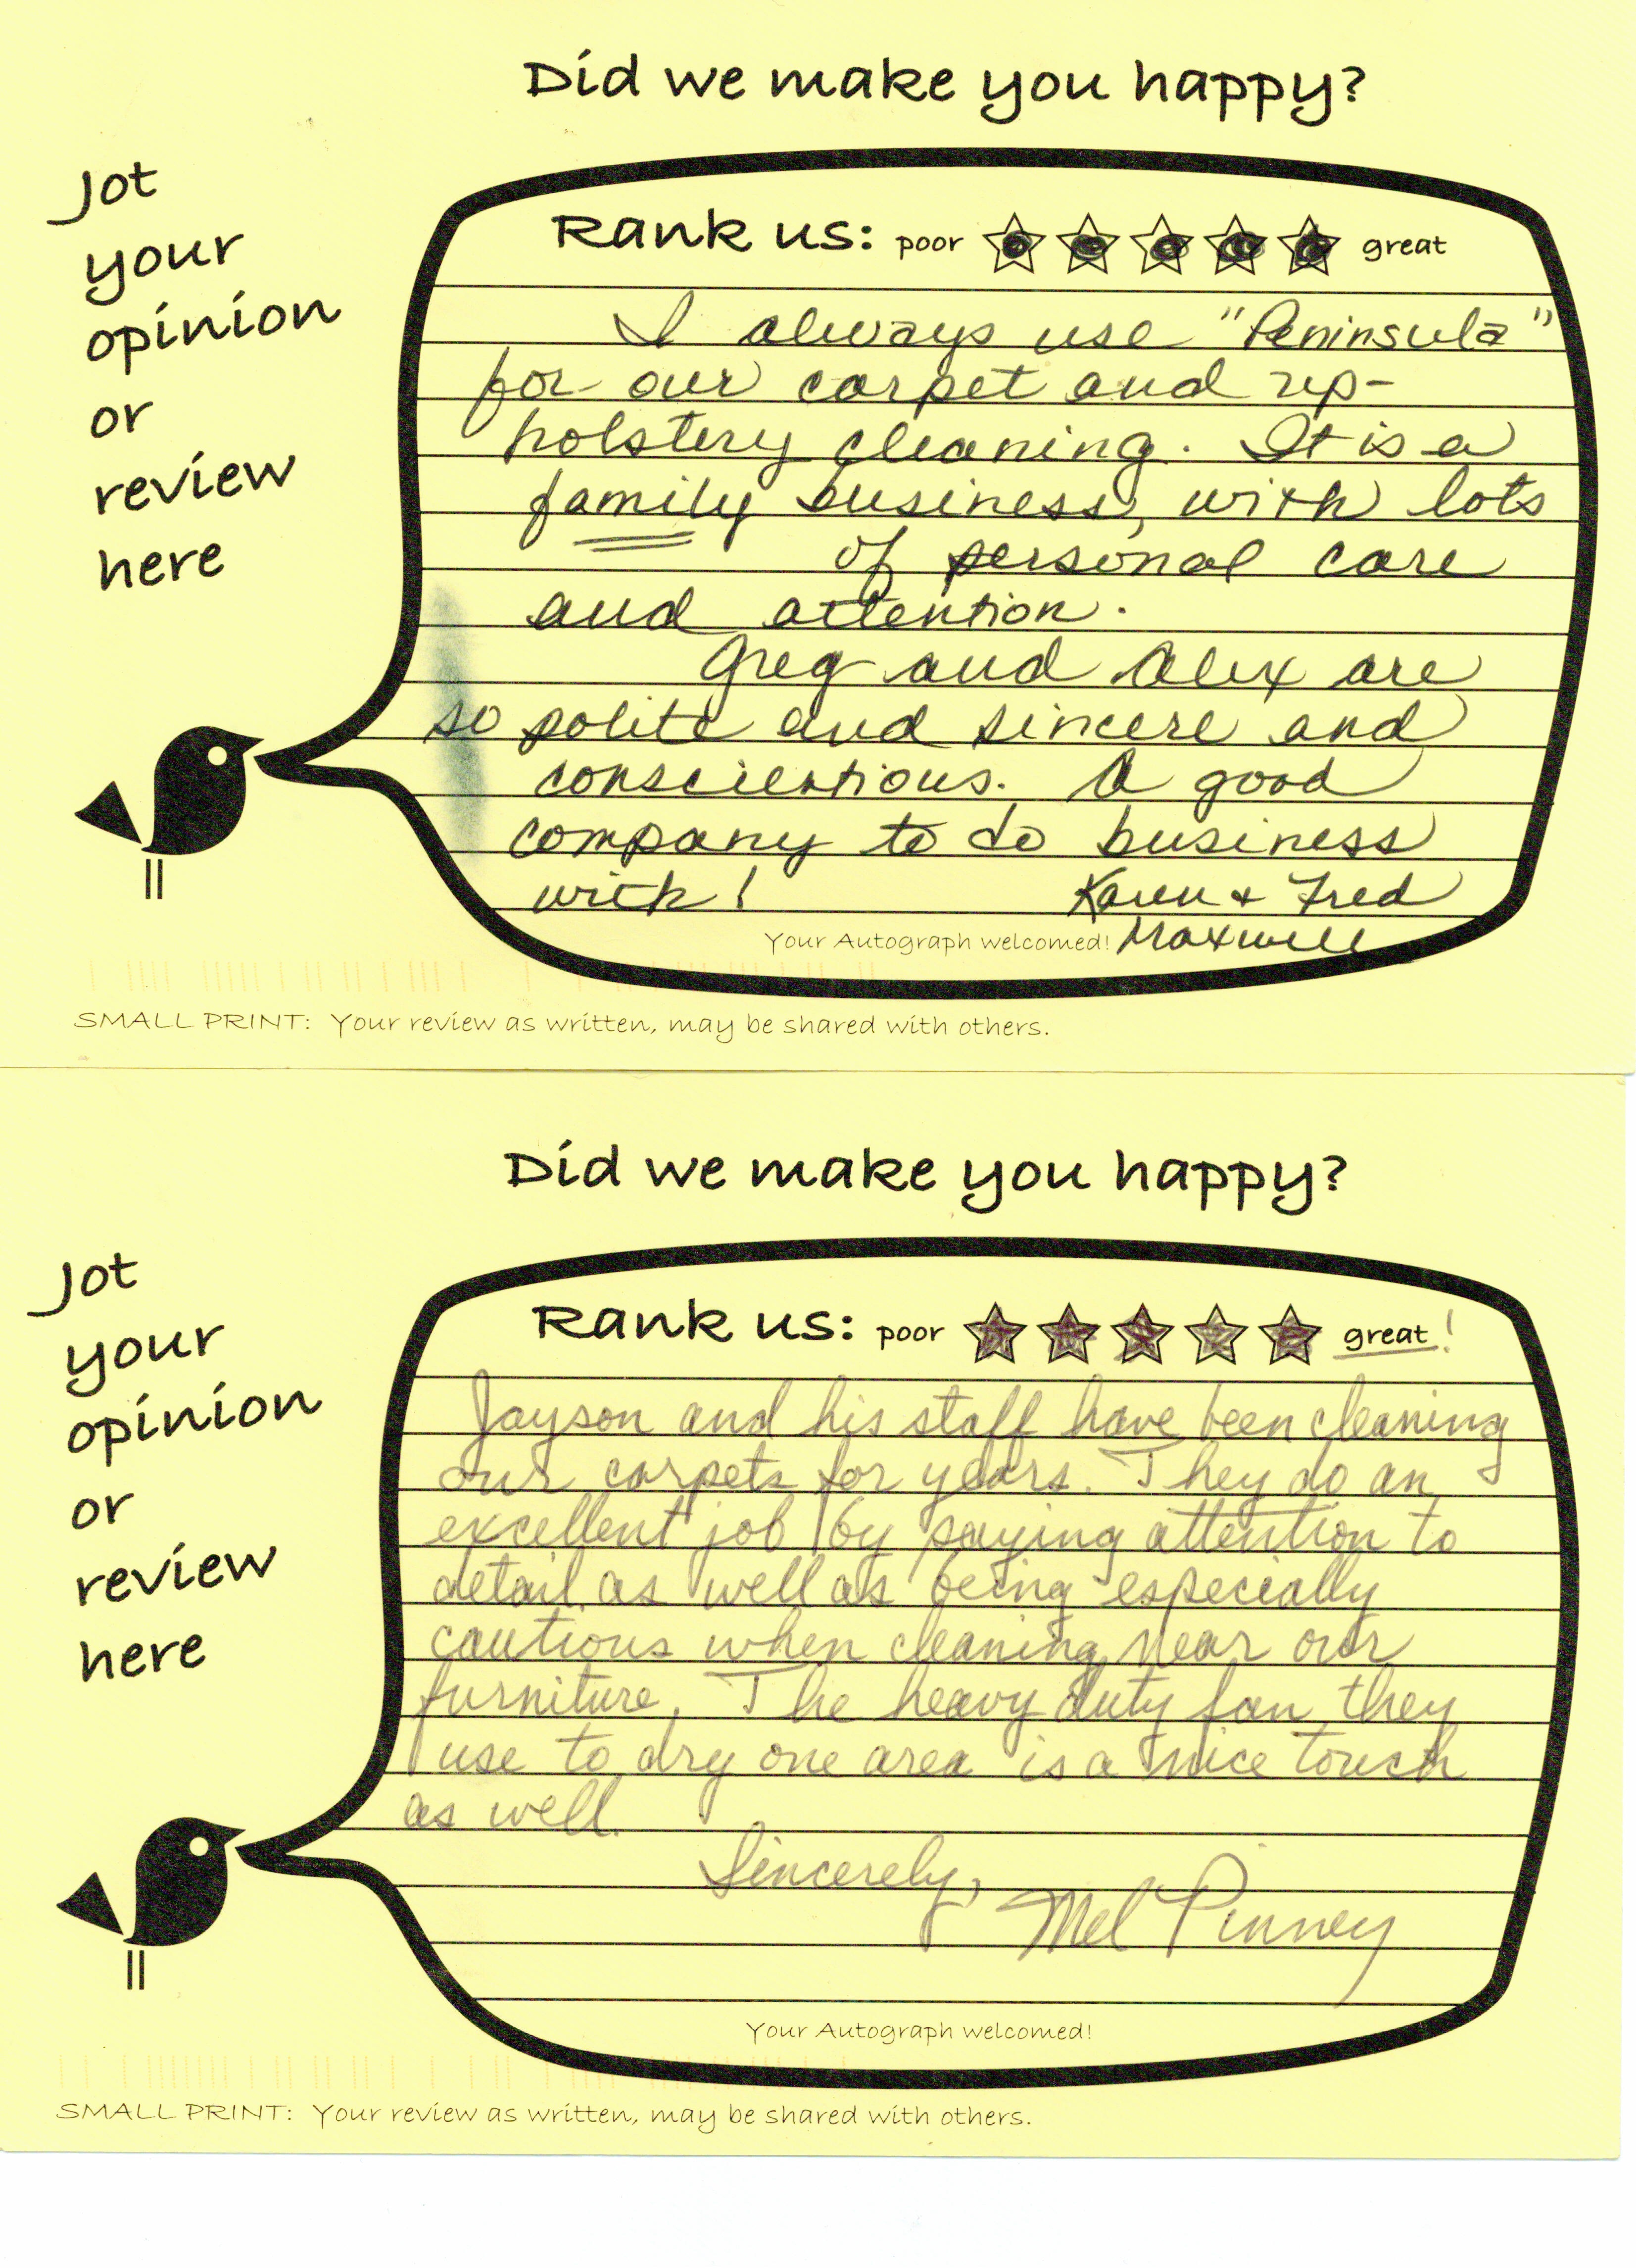 Did we make you happy?
Jot
your
opinion
or
review
here
Rank us: poor great
I always use "Peninsula"
for our carpet and up-
holstery cleaning. It is a
family business, with lots
of personal care
and attention.
Greg and Alex are
so polite and sincere and
conscientious. A good
company to do business
with!
Karen + Fred
Maxwell
Your Autograph welcomed!
SMALL PRINT: Your review as written, may be shared with others.
Did we make you happy?
Jot
your
opinion
or
review
here
Rank us: poor great!
Jayson and his staff have been cleaning
our carpets for years. They do an
excellent job by paying attention to
detail as well as being especially
cautious when cleaning near our
furniture. The heavy duty fan they
use to dry one area is a nice touch
as well.
Sincerely,
Mel Pinney
Your Autograph welcomed!
SMALL PRINT: Your review as written, may be shared with others.